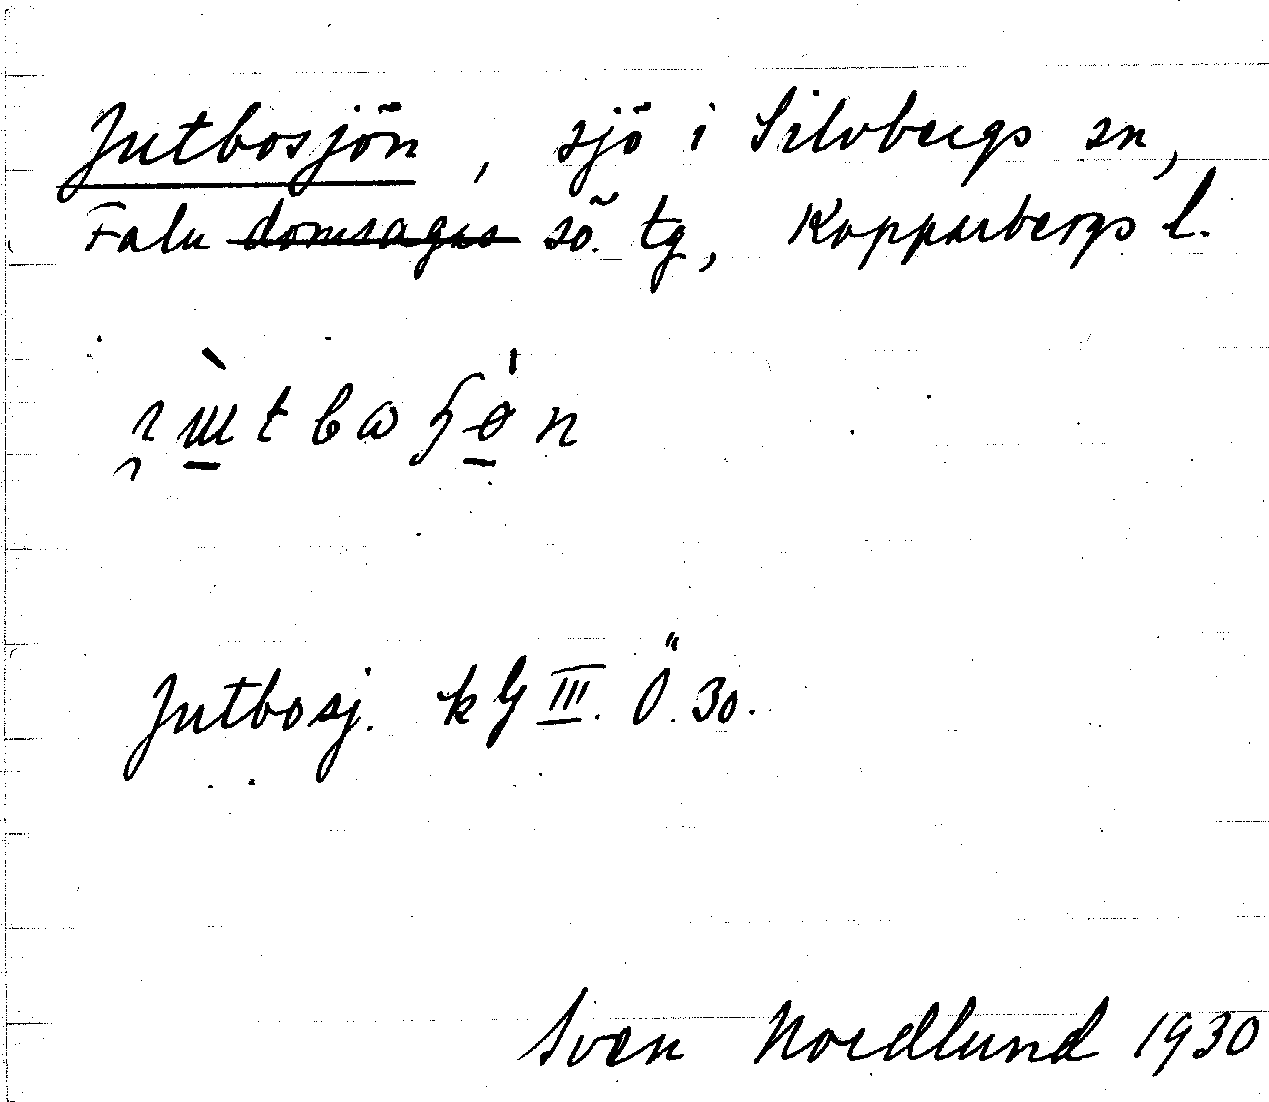 Jutbosjön, sjö i Silvbergs sn,
Falu domsagas sö. tg, Kopparbergs l.
Jutbosj. kg III. Ö. 30.
Sven Nordlund 1930